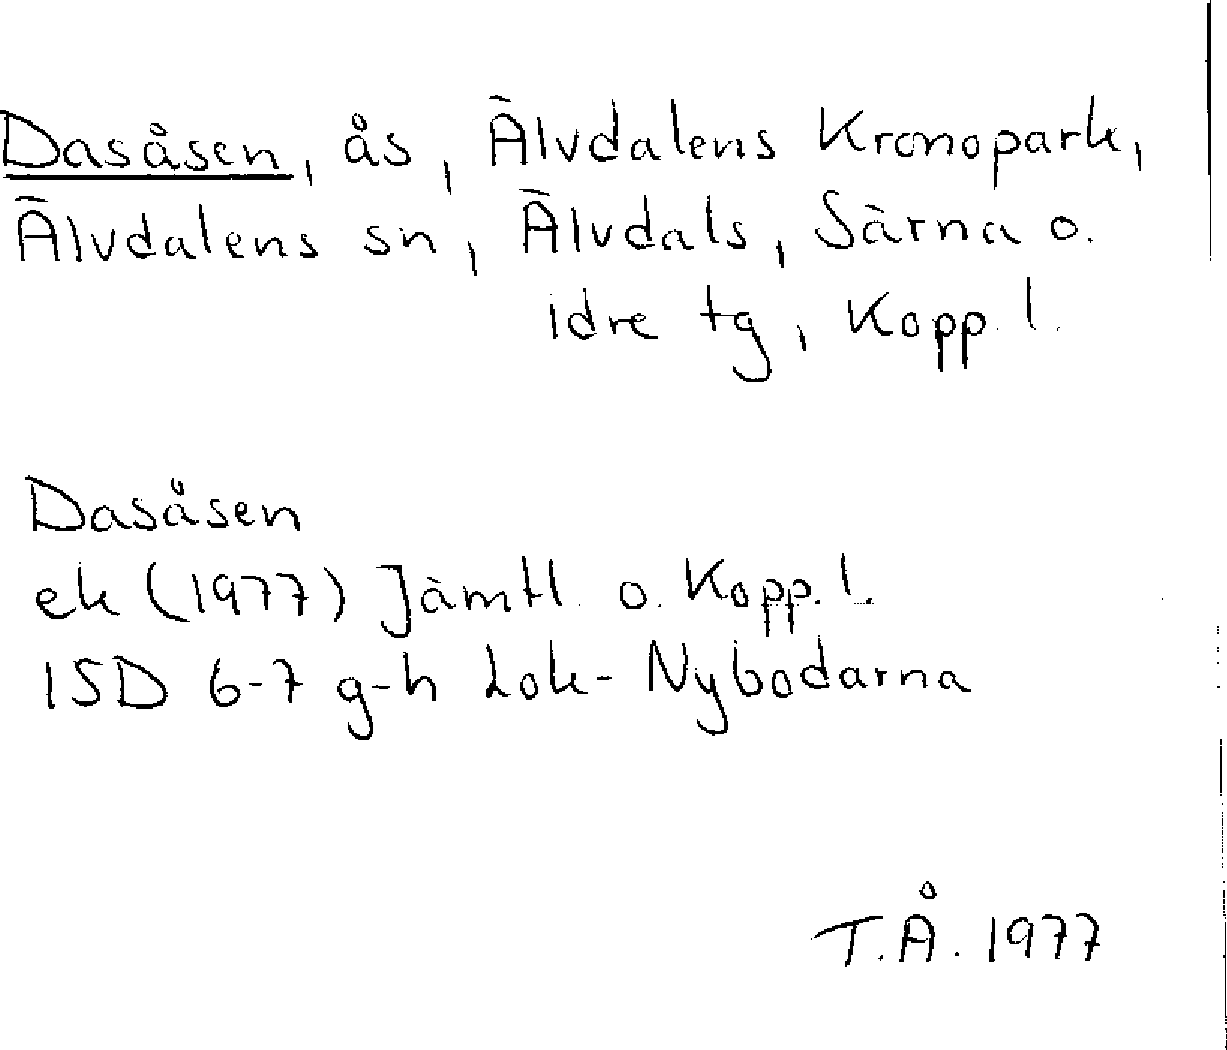 Dasåsen, ås, Älvdalens Kronopark,
Älvdalens sn, Älvdals, Särna o.
idre tg, Kopp. l.
Dasåsen
ek (1977) Jämtl. o. Kopp. l.
15D 6-7 g-h Lok- Nybodarna
T.Å. 1977